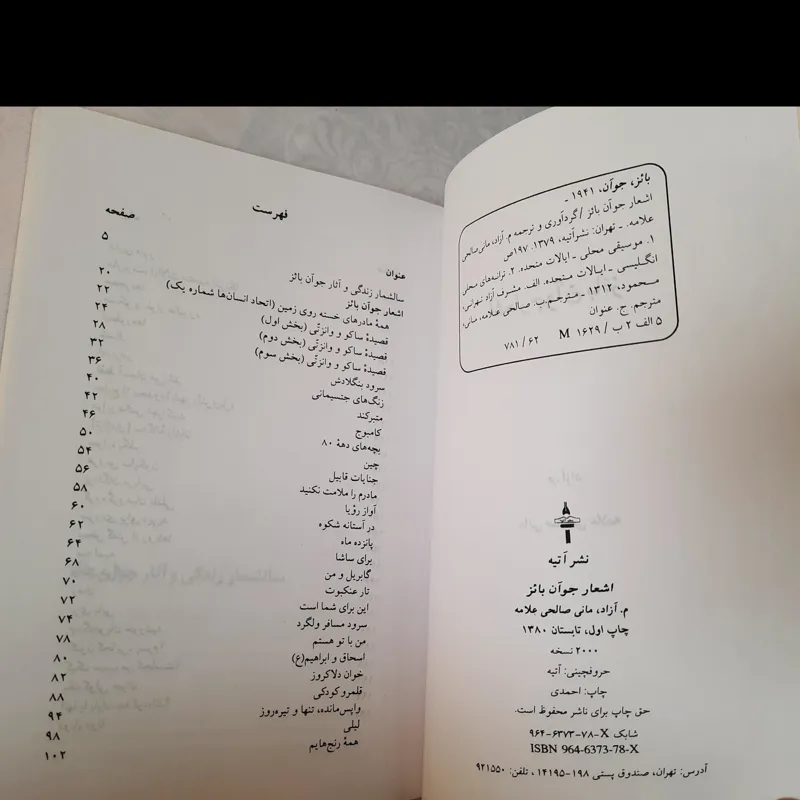 بائز، جوآن، ۱۹۴۱ -
اشعار جوآن بائز / گردآوری و ترجمه م. آزاد، مانی صالحی
علامه. ـ تهران: نشرآتیه، ۱۳۷۹. ۱۹۷ص
۱. موسیقی محلی - ایالات متحده. ۲. ترانه‌های محلی
انگلیسی - ایالات متحده. الف. مشرف آزاد تهرانی،
محمود، ۱۳۱۲ - مترجم.ب. صالحی علامه، مانی،
مترجم. ج. عنوان
۵ الف ۲ ب / ۱۶۲۹ M ۷۸۱ / ۶۲
نشر آتیه
اشعار جوآن بائز
م. آزاد، مانی صالحی علامه
چاپ اول، تابستان ۱۳۸۰
۲۰۰۰ نسخه
حروفچینی: آتیه
چاپ: احمدی
حق چاپ برای ناشر محفوظ است.
شابک X-۷۸-۶۳۷۳-۹۶۴
ISBN 964-6373-78-X
آدرس: تهران، صندوق پستی ۱۹۸-۱۴۱۹۵ ، تلفن: ۹۲۱۵۵۰
فهرست
عنوان صفحه
سالشمار زندگی و آثار جوآن بائز ۵
اشعار جوآن بائز
همهٔ مادرهای خسته روی زمین (اتحاد انسان‌ها شماره یک) ۲۰
قصیدهٔ ساکو و وانزتّی (بخش اول) ۲۲
قصیدهٔ ساکو و وانزتّی (بخش دوم) ۲۴
قصیدهٔ ساکو و وانزتّی (بخش سوم) ۲۸
سرود بنگلادش ۳۲
زنگ‌های جتسیمانی ۳۶
متبرکند ۴۰
کامبوج ۴۲
بچه‌های دههٔ ۸۰ ۴۶
چین ۵۰
جنایات قابیل ۵۴
مادرم را ملامت نکنید ۵۶
آواز رؤیا ۵۸
در آستانه شکوه ۶۰
پانزده ماه ۶۲
برای ساشا ۶۴
گابریل و من ۶۸
تار عنکبوت ۷۰
این برای شما است ۷۲
سرود مسافر ولگرد ۷۴
من با تو هستم ۷۸
اسحاق و ابراهیم(ع) ۸۰
خوان دلاکروز ۸۲
قلمرو کودکی ۸۸
واپس‌مانده، تنها و تیره‌روز ۹۴
لیلی ۹۸
همهٔ رنج‌هایم ۱۰۲